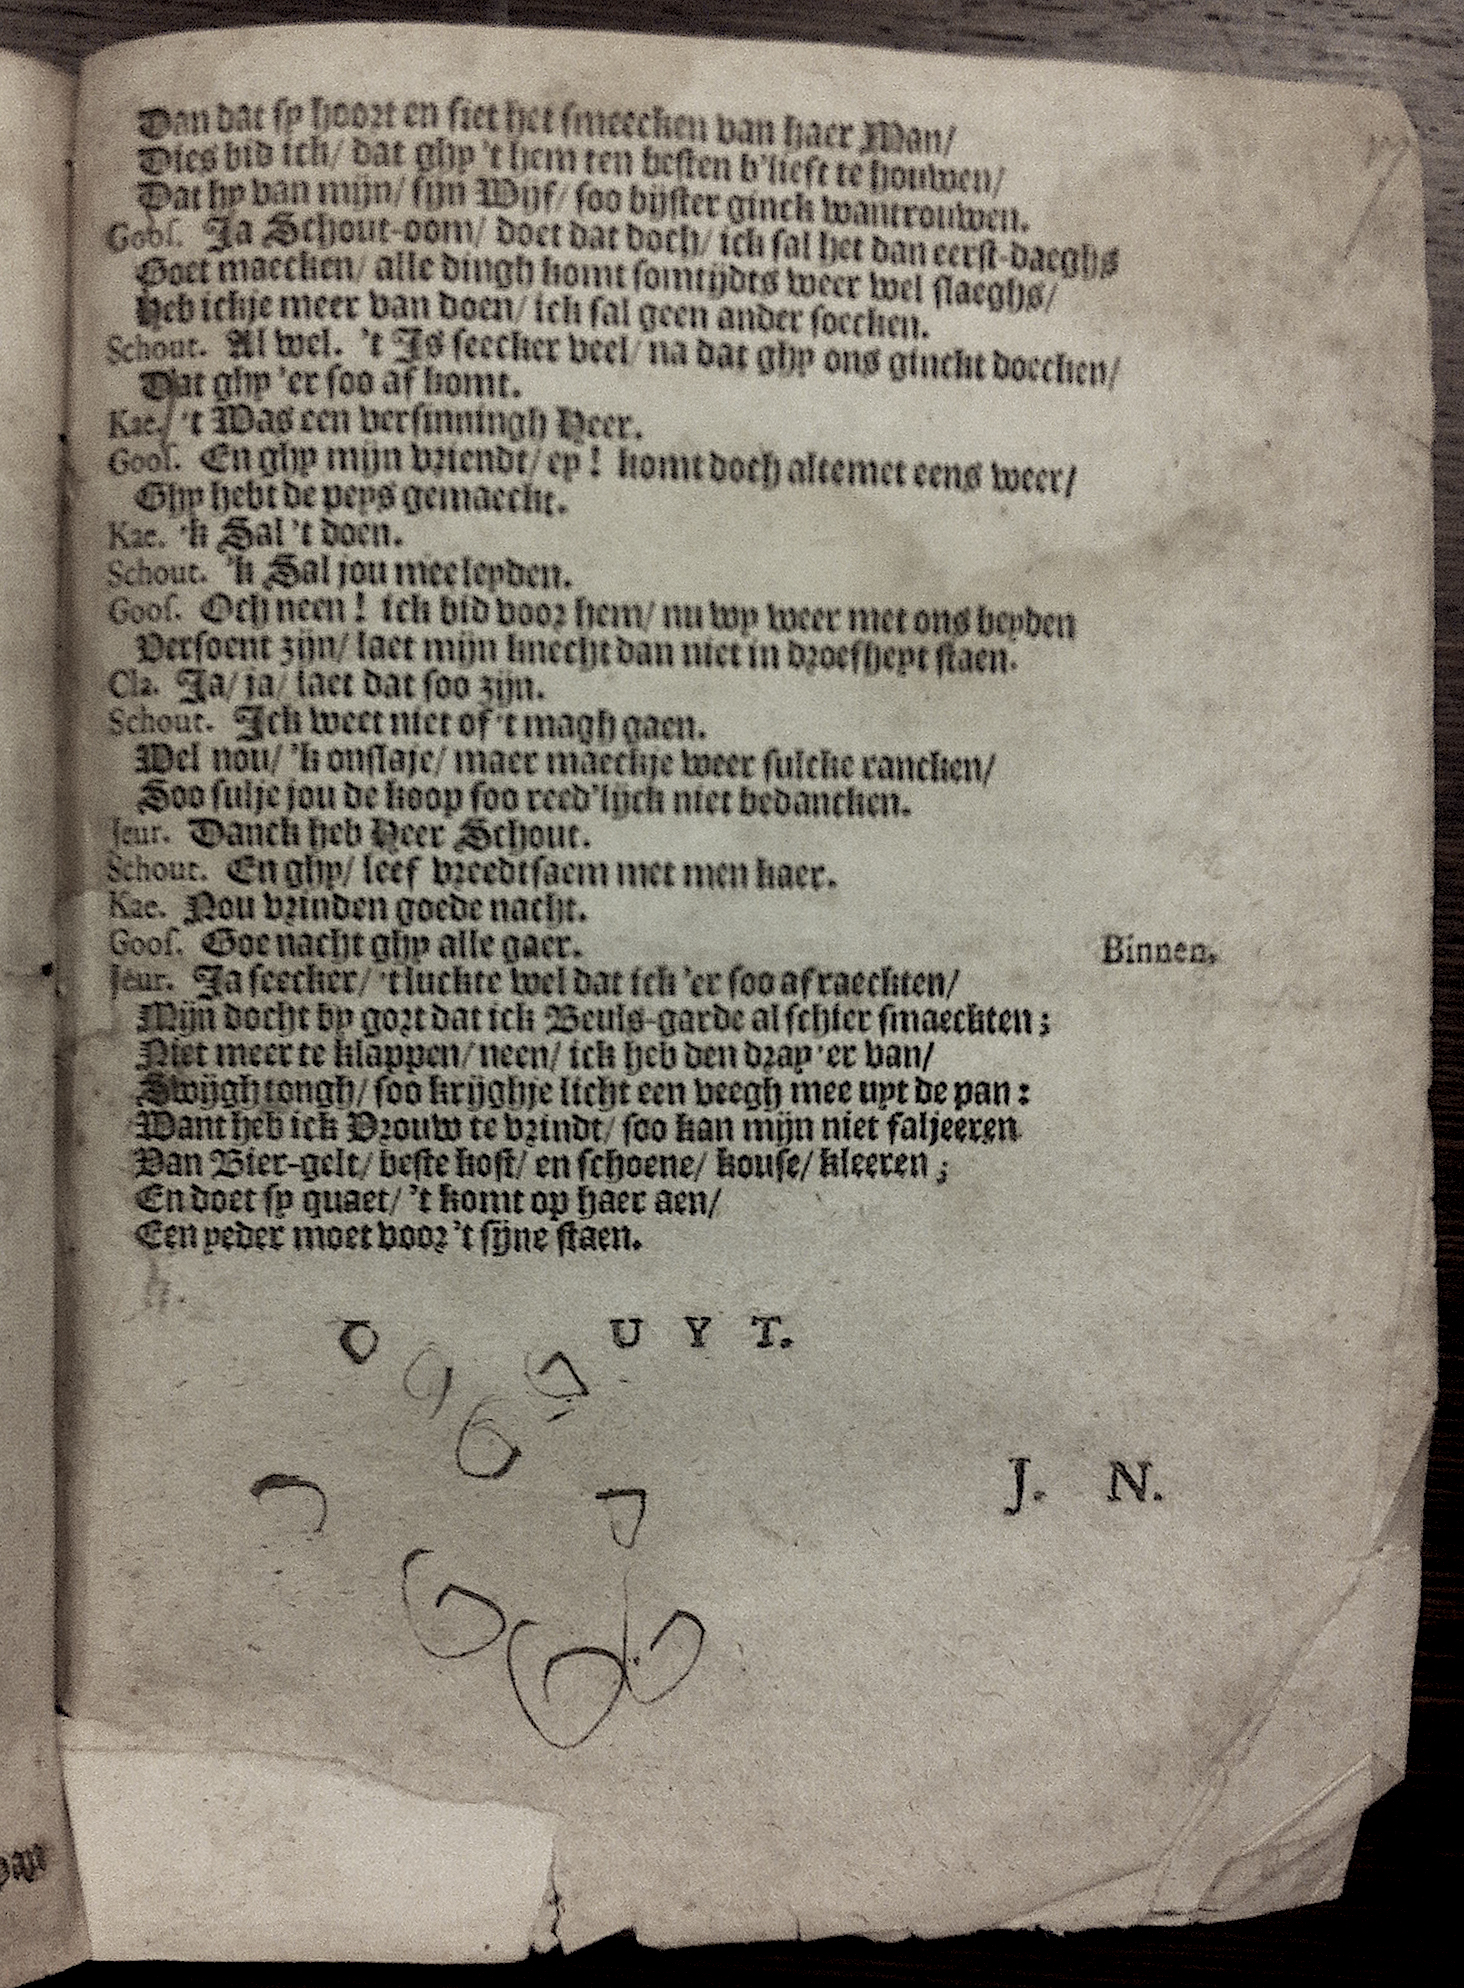 Dan dat sy hoort en siet het smeecken van haer Man/
Dies bid ick/ dat ghy 't hem ten besten b'lieft te houwen/
Dat hy van mijn/ sijn Wijf/ soo bijster ginck wantrouwen.
Goos. Ja Schout-oom/ doet dat doch/ ick sal het dan eerst-daeghs
Goet maecken/ alle dingh komt somtijdts weer wel slaeghs/
Heb ickje meer van doen/ ick sal geen ander soecken.
Schout. Al wel. 't Is seecker veel/ na dat ghy ons ginckt doecken/
Dat ghy 'er soo af komt.
Kae. 't Was een versinningh Heer.
Goos. En ghy mijn vriendt/ ey! komt doch altemet eens weer/
Ghy hebt de peys gemaeckt.
Kae. 'k Sal 't doen.
Schout. 'k Sal jou mee leyden.
Goos. Och neen! ick bid voor hem/ nu wy weer met ons beyden
Versoent zijn/ laet mijn knecht dan niet in droefheyt staen.
Cla. Ja/ ja/ laet dat soo zijn.
Schout. Ick weet niet of 't magh gaen.
Wel nou/ 'k onslaje/ maer maeckje weer sulcke rancken/
Soo sulje jou de koop soo reed'lijck niet bedancken.
Jeur. Danck heb Heer Schout.
Schout. En ghy/ leef vreedtsaem met men kaer.
Kae. Nou vrinden goede nacht.
Goos. Goe nacht ghy alle gaer. Binnen.
Jeur. Ja seecker/ 't luckte wel dat ick 'er soo af raeckten/
Mijn docht by gort dat ick Beuls-garde al schier smaeckten;
Niet meer te klappen/ neen/ ick heb den dray 'er van/
Swijgh tongh/ soo krijghje licht een veegh mee uyt de pan:
Want heb ick Vrouw te vrindt/ soo kan mijn niet faljeeren
Van Bier-gelt/ beste kost/ en schoene/ kouse/ kleeren;
En doet sy quaet/ 't komt op haer aen/
Een yeder moet voor 't sijne staen.
UYT.
J. N.